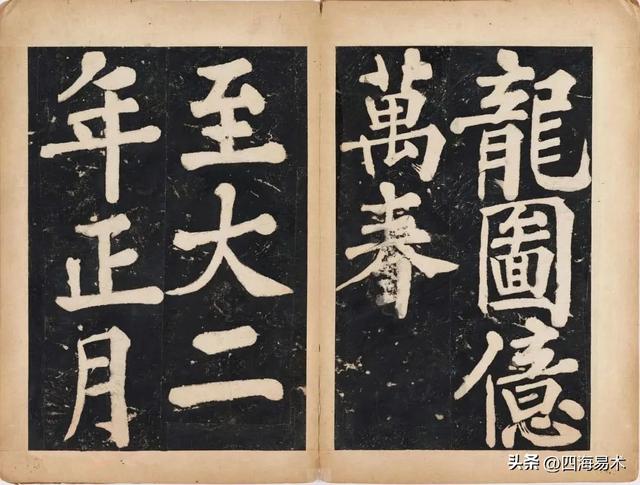 龍圖億
萬春
至大二
年正月
头条 @四海易木